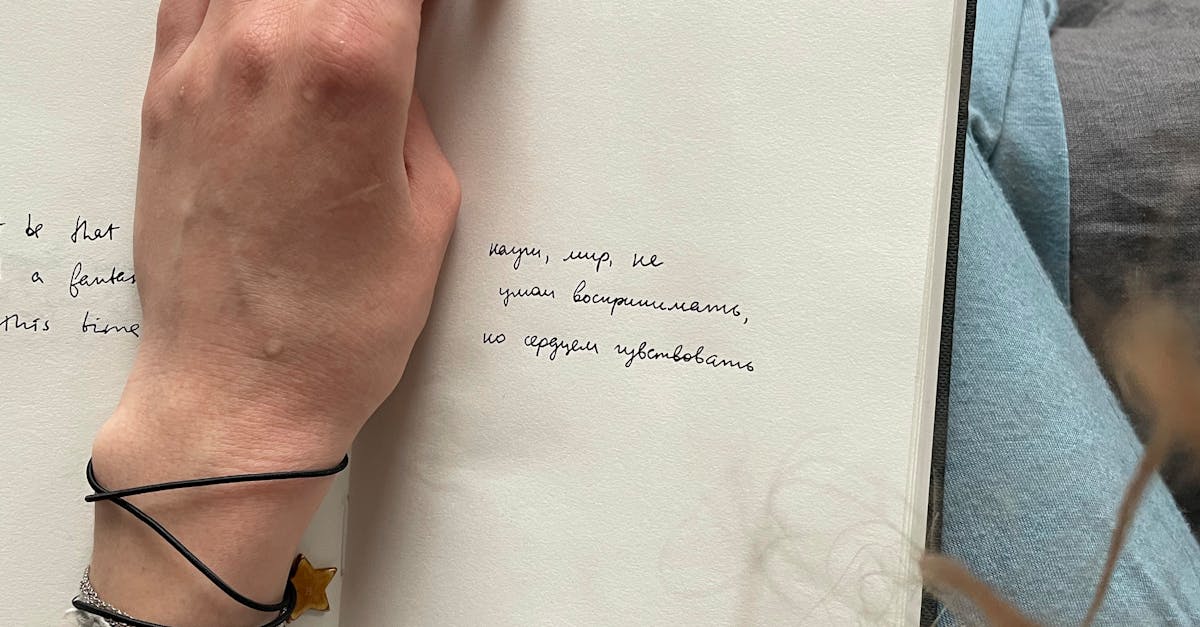 be that
a fantas
this time
научи, мир, не
умом воспринимать,
но сердцем чувствовать